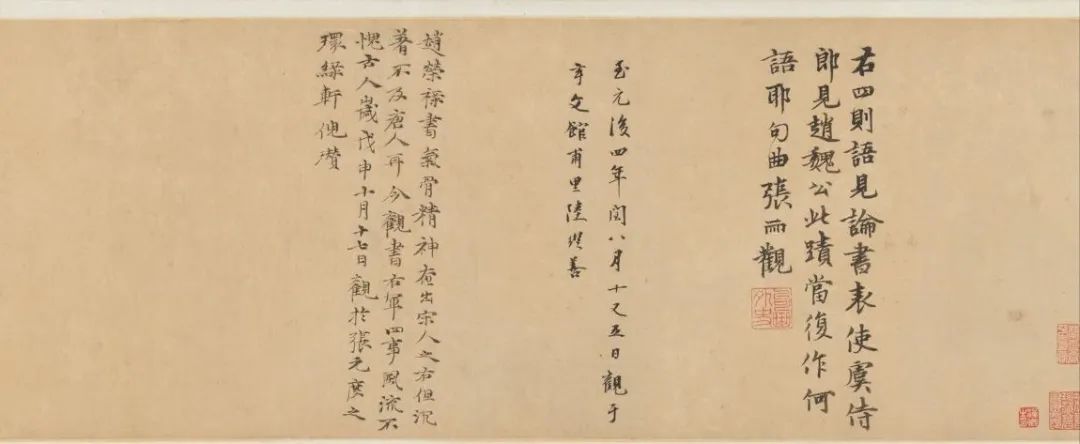 右四則語見論書表使虞侍
郎見趙魏公此蹟當復作何
語耶句曲張雨觀
句曲外史
至元後四年閏八月十又五日觀于
玄文館甫里陸繼善
趙榮祿書氣骨精神奄出宋人之右但沉
著不及唐人耳今觀書右軍四事風流不
愧古人歲戊申十月十七日觀於張元度之
環綠軒倪瓚